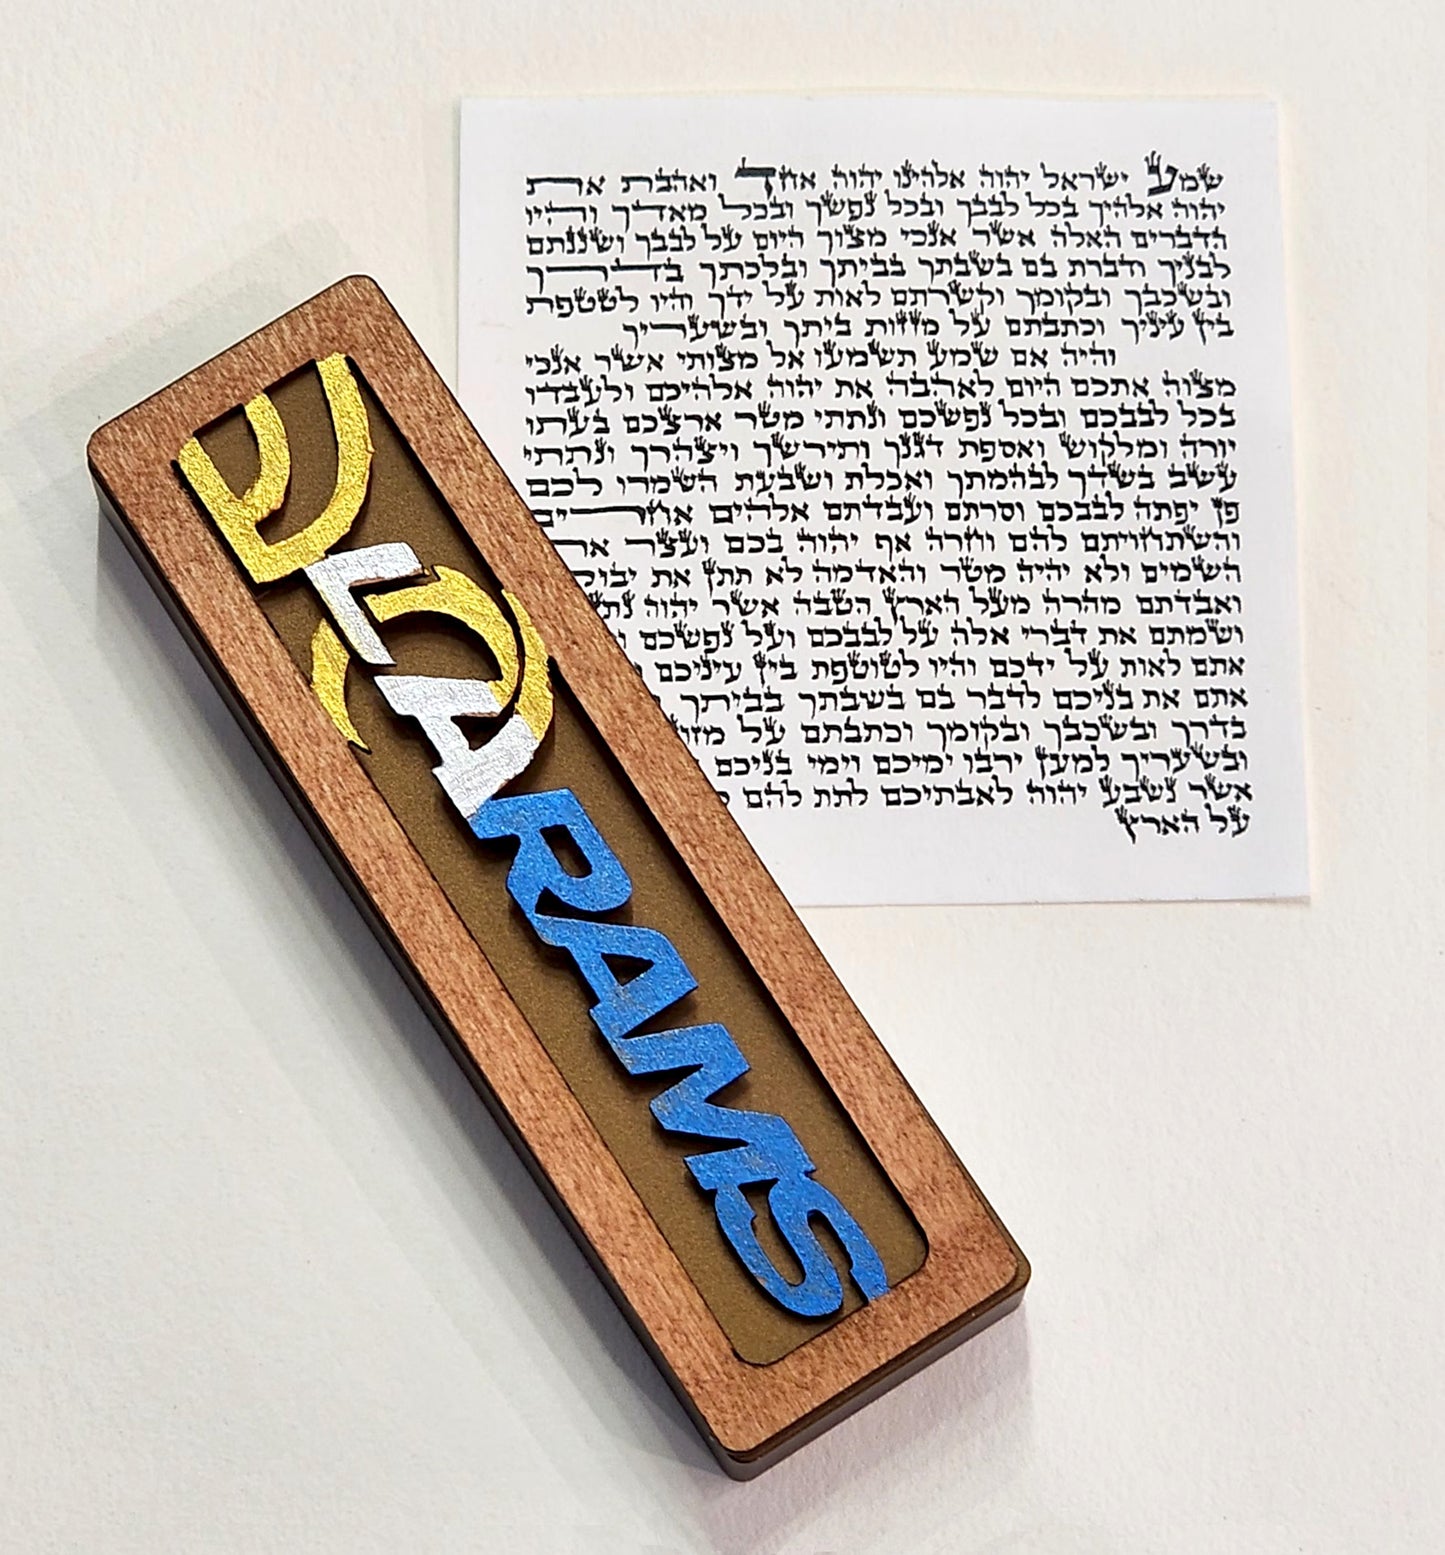 שמע ישראל יהוה אלהינו יהוה אחד ואהבת את
יהוה אלהיך בכל לבבך ובכל נפשך ובכל מאדך והיו
הדברים האלה אשר אנכי מצוך היום על לבבך ושננתם
לבניך ודברת בם בשבתך בביתך ובלכתך בדרך
ובשכבך ובקומך וקשרתם לאות על ידך והיו לטטפת
בין עיניך וכתבתם על מזזות ביתך ובשעריך
והיה אם שמע תשמעו אל מצותי אשר אנכי
מצוה אתכם היום לאהבה את יהוה אלהיכם ולעבדו
בכל לבבכם ובכל נפשכם ונתתי מטר ארצכם בעתו
יורה ומלקוש ואספת דגנך ותירשך ויצהרך ונתתי
עשב בשדך לבהמתך ואכלת ושבעת השמרו לכם
פן יפתה לבבכם וסרתם ועבדתם אלהים אחרים
והשתחויתם להם וחרה אף יהוה בכם ועצר
השמים ולא יהיה מטר והאדמה לא תתן את
ואבדתם מהרה מעל הארץ הטבה אשר יהוה
ושמתם את דברי אלה על לבבכם ועל נפשכם
אתם לאות על ידכם והיו לטוטפת בין עיניכם
אתם את בניכם לדבר בם בשבתך בביתך
בדרך ובשכבך ובקומך וכתבתם על
ובשעריך למען ירבו ימיכם וימי בניכם
אשר נשבע יהוה לאבתיכם לתת להם
על הארץ
ש
LA
RAMS